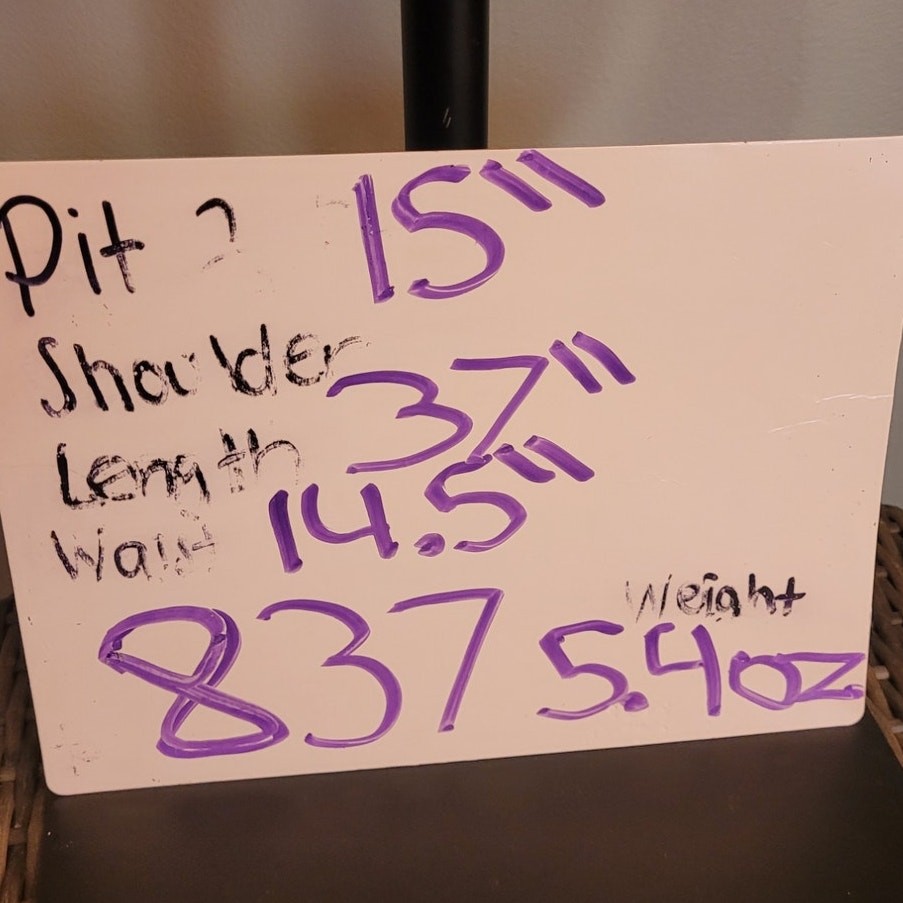 Pit 2 15"
Shoulder
37"
Length
Waist 14.5"
Weight
837 5.4oz